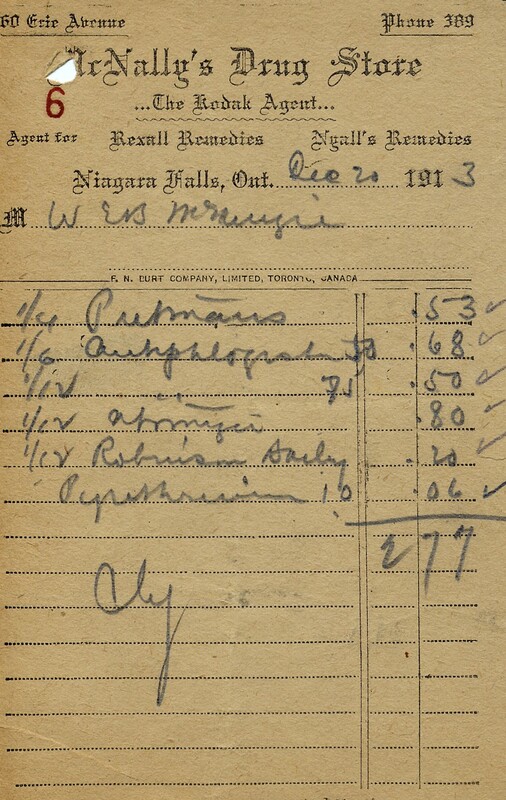 60 Erie Avenue Phone 389
McNally's Drug Store
6 ...The Kodak Agent...
Agent for Rexall Remedies Nyall's Remedies
Niagara Falls, Ont. Dec 20 1913
M W EB McKenzie
F. N. BURT COMPANY, LIMITED, TORONTO, CANADA
1/4 Putmans .53
1/6 Antiphlogistin 50 .68
1/12 " 75 .50
1/12 .80
1/12 Robinson Barley .20
Pyrethrum 10 .06
2 77